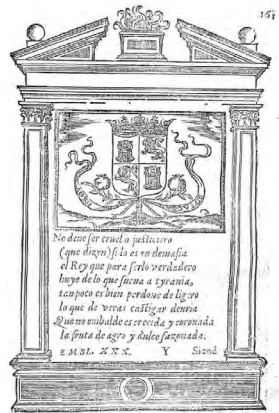 161
No deue ser cruel o justiciero
(que dizen) si lo es en demasia
el Rey que para serlo verdadero
huye de lo que suena a tyrania,
tanpoco es bien perdone de ligero
lo que de veras castigar deuria
Que no embalde es crecida y coronada
la fruta de agro y dulce sazonada.
EMBL. XXX. Y Siend